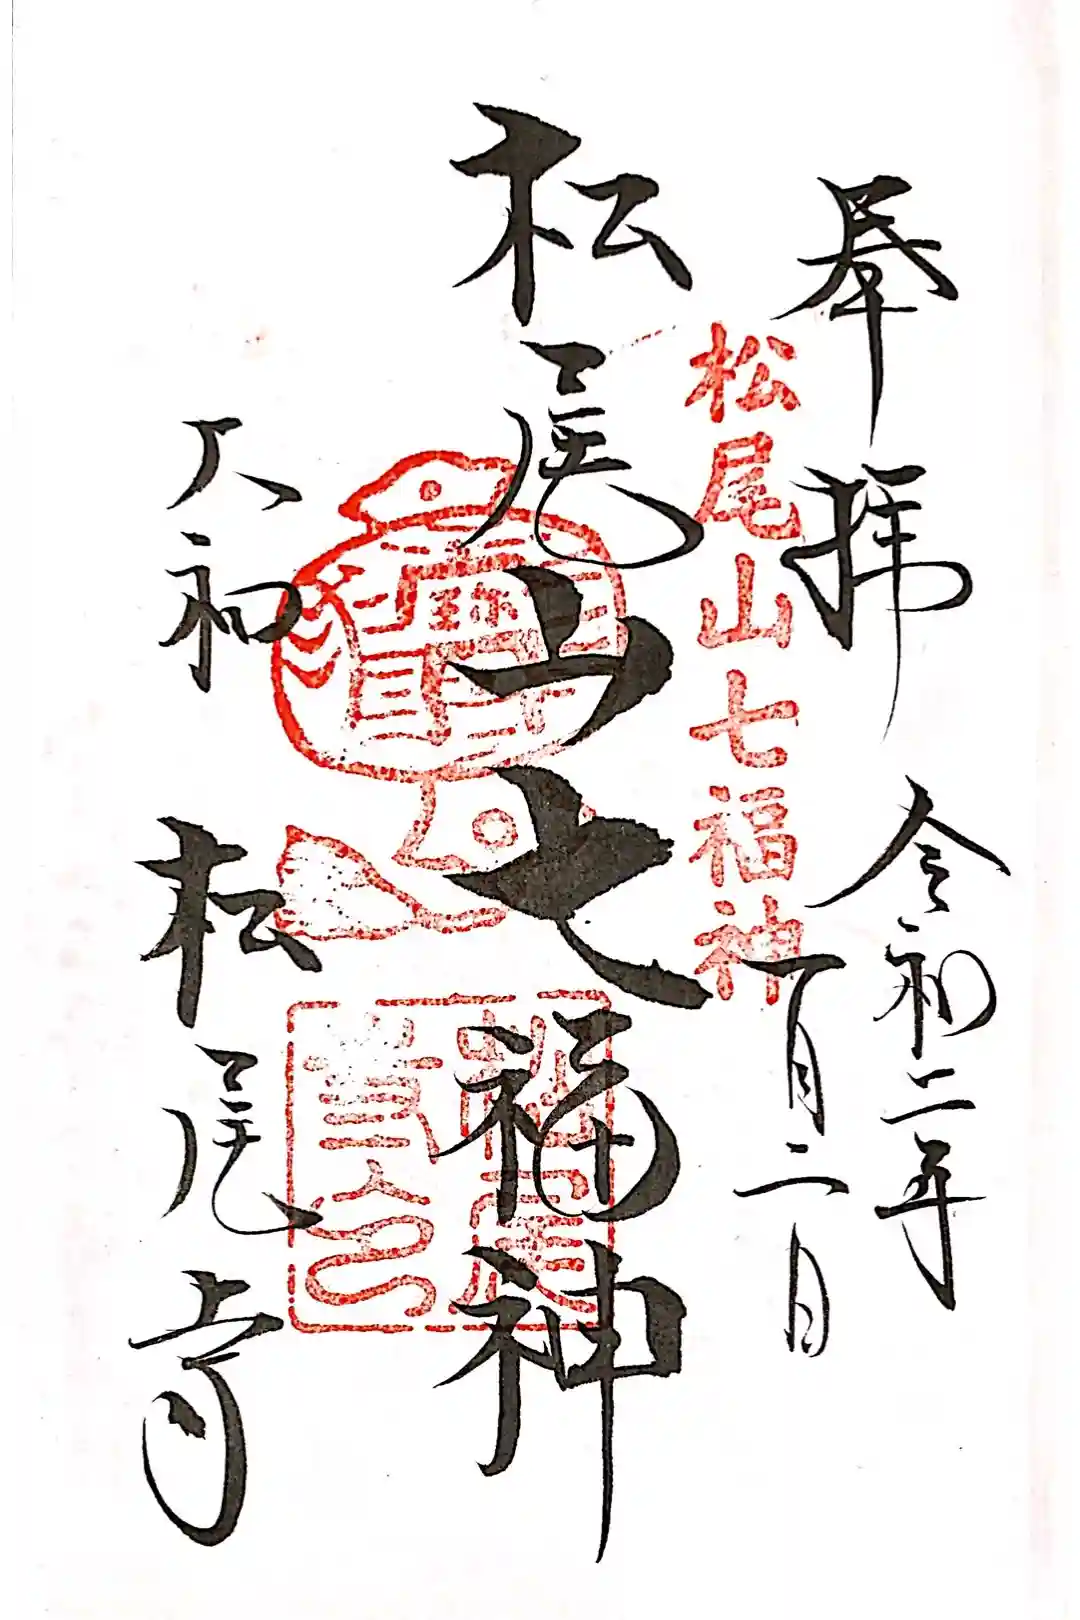 奉拝
令和二年
一月二日
松尾山七福神
松尾山七福神
大和 松尾寺